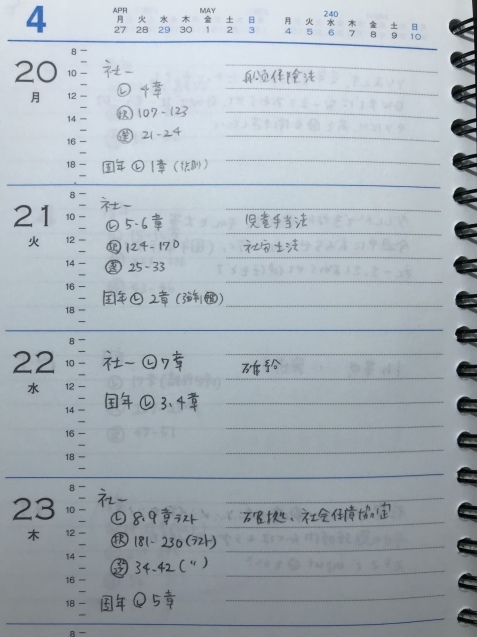 4
APR MAY 240
月 火 水 木 金 土 日 月 火 水 木 金 土 日
27 28 29 30 1 2 3 4 5 6 7 8 9 10
20
月
8
10
12
14
16
18
社一 船員保険法
Ⓛ 4章
㊋ 107-123
㊋ 21-24
国年 Ⓛ 1章 (法則)
21
火
8
10
12
14
16
18
社一
Ⓛ 5-6章 児童手当法
124-170 社労士法
25-33
国年 Ⓛ 2章
22
水
8
10
12
14
16
18
社一 Ⓛ 7章 確給
国年 Ⓛ 3、4章
23
木
8
10
12
14
16
18
社一
Ⓛ 8、9章 ラスト 確拠、社会保障協定
択 181-230 (ラスト)
選 34-42 ( 〃 )
国年 Ⓛ 5章
8